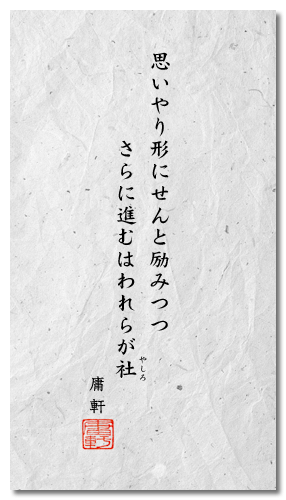 思いやり形にせんと励みつつ
さらに進むはわれらが社
やしろ
庸軒